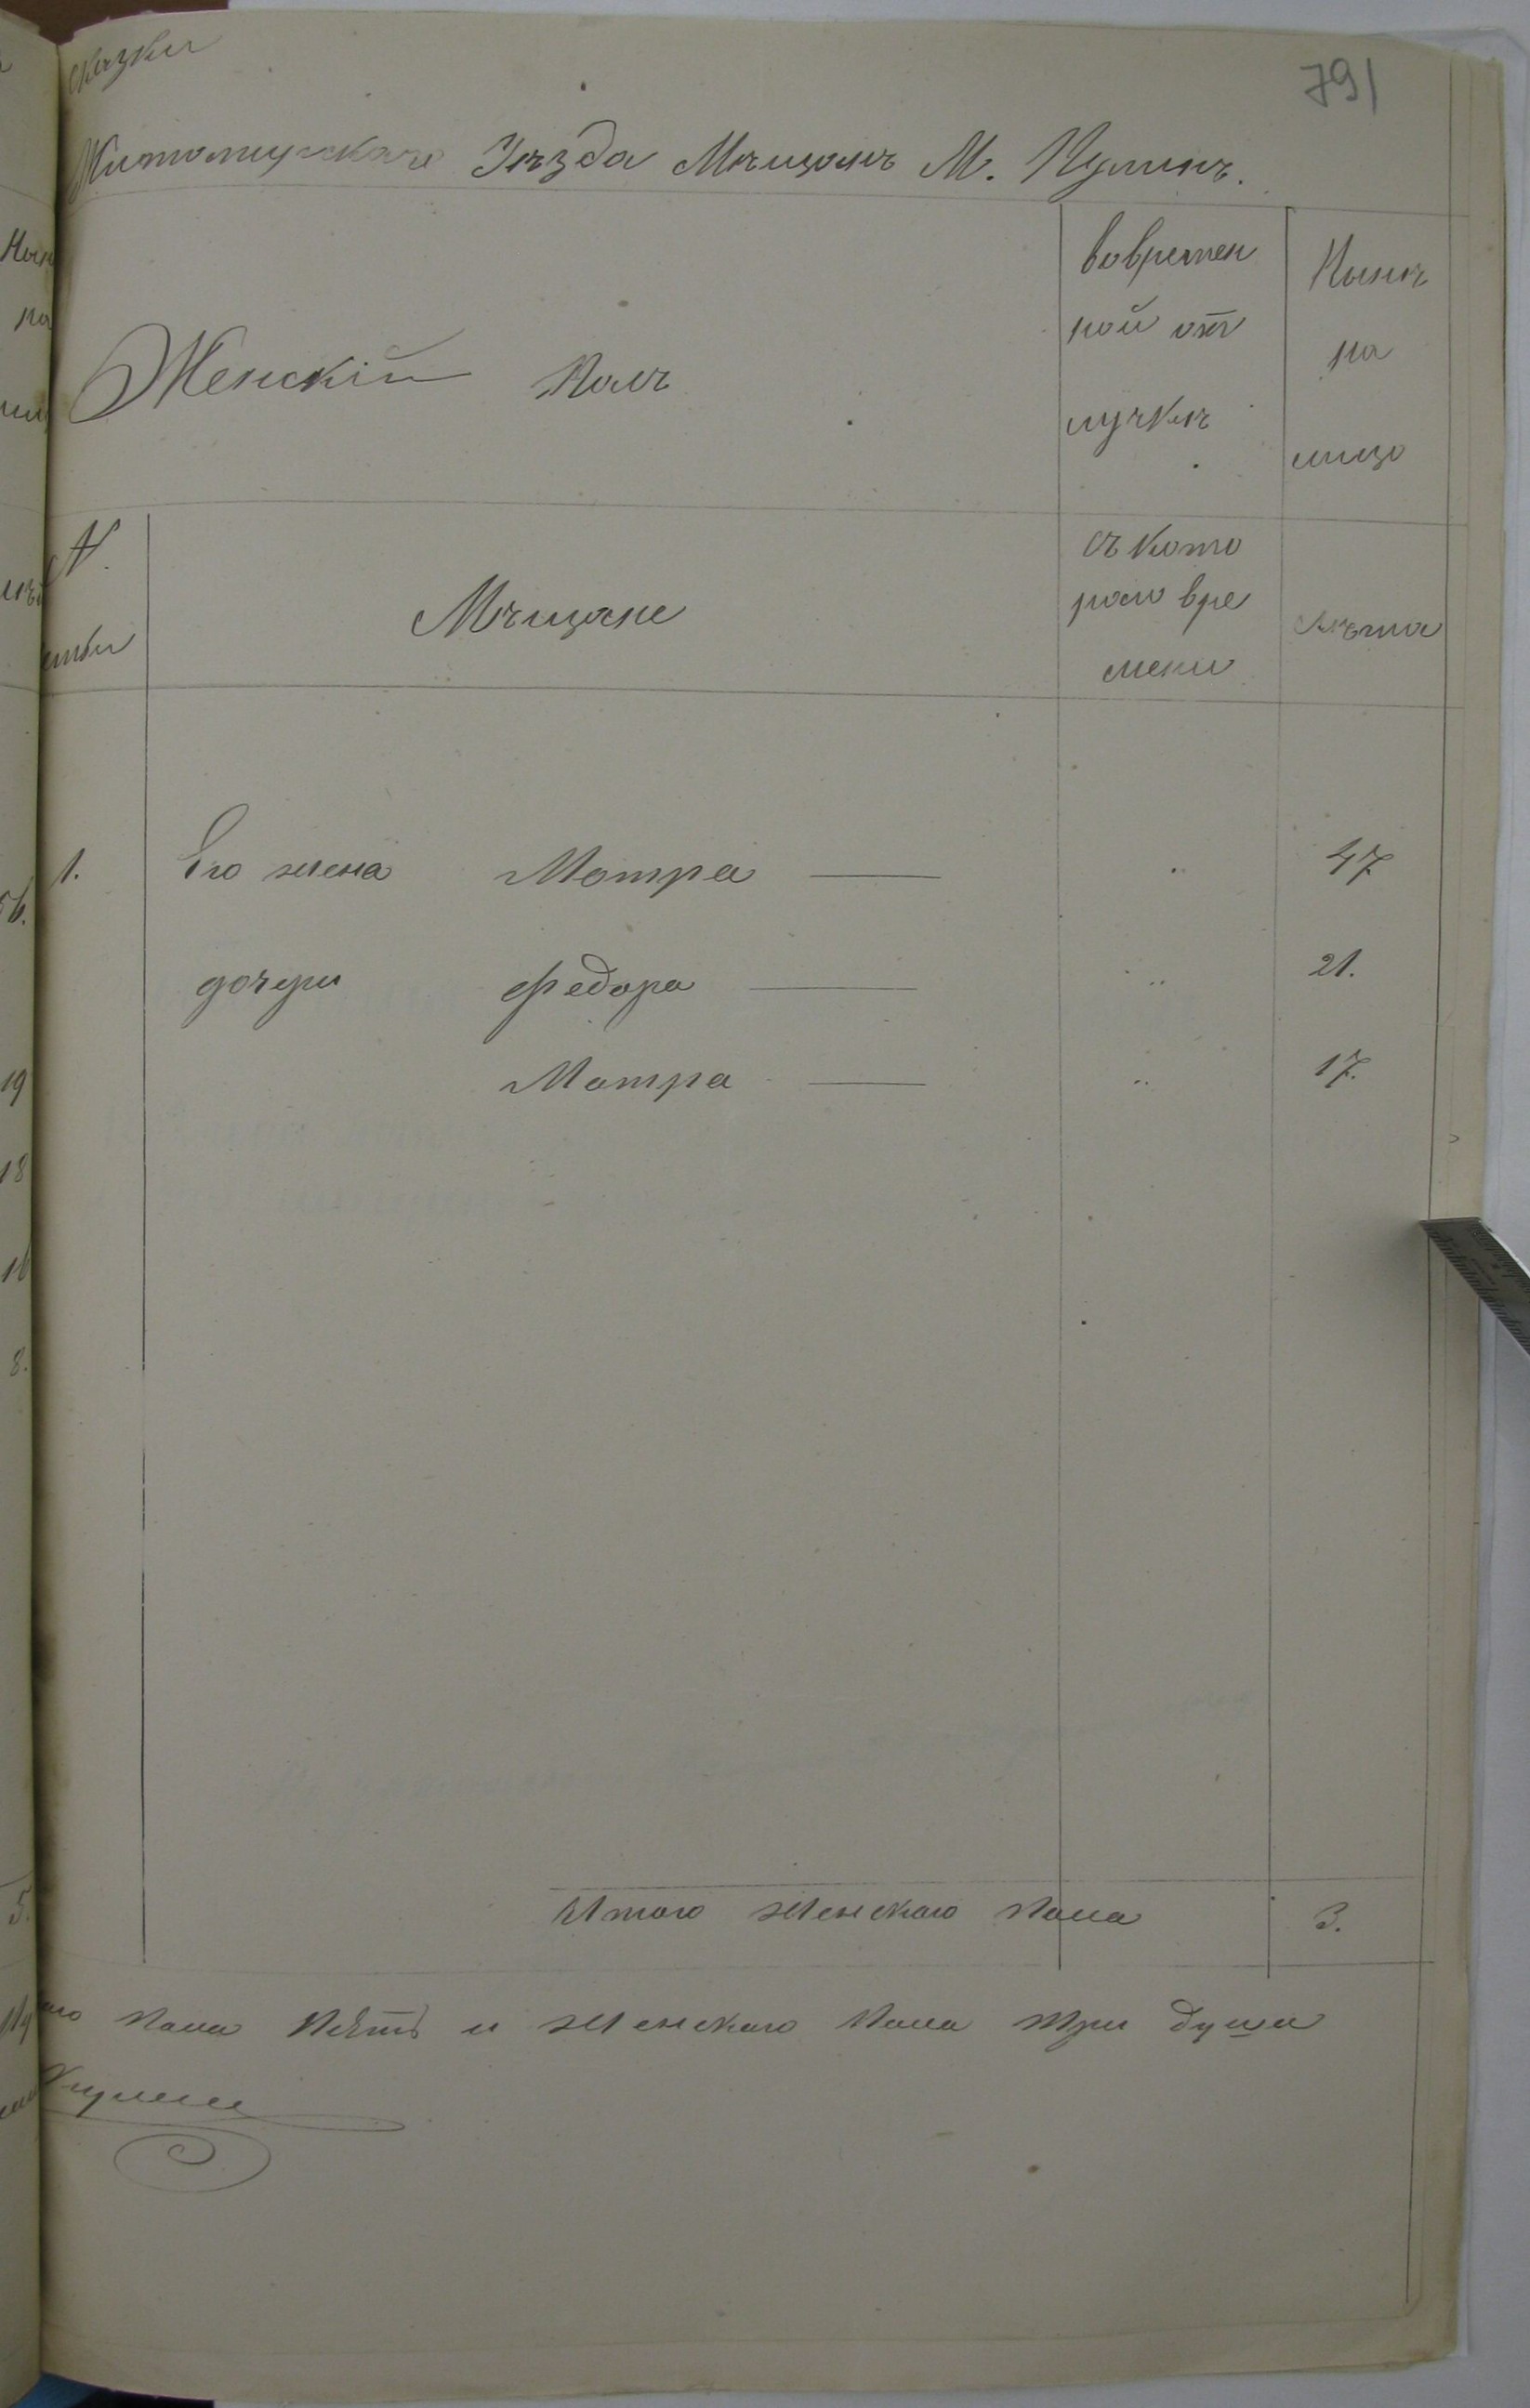 сказки
791
Житомирскаго Уѣзда Мѣщанъ М. Пулинъ.
Женскій Полъ
вовремен
ной от
лучкѣ
Нынѣ
на
лицо
№
Мѣщане
съ кото
раго вре
мени
Лѣта
1. Его жена Мотра — " 47
дочери Федора — " 21.
Мотра — " 17.
Итого женскаго пола 3.
пола пять и женскаго пола три души